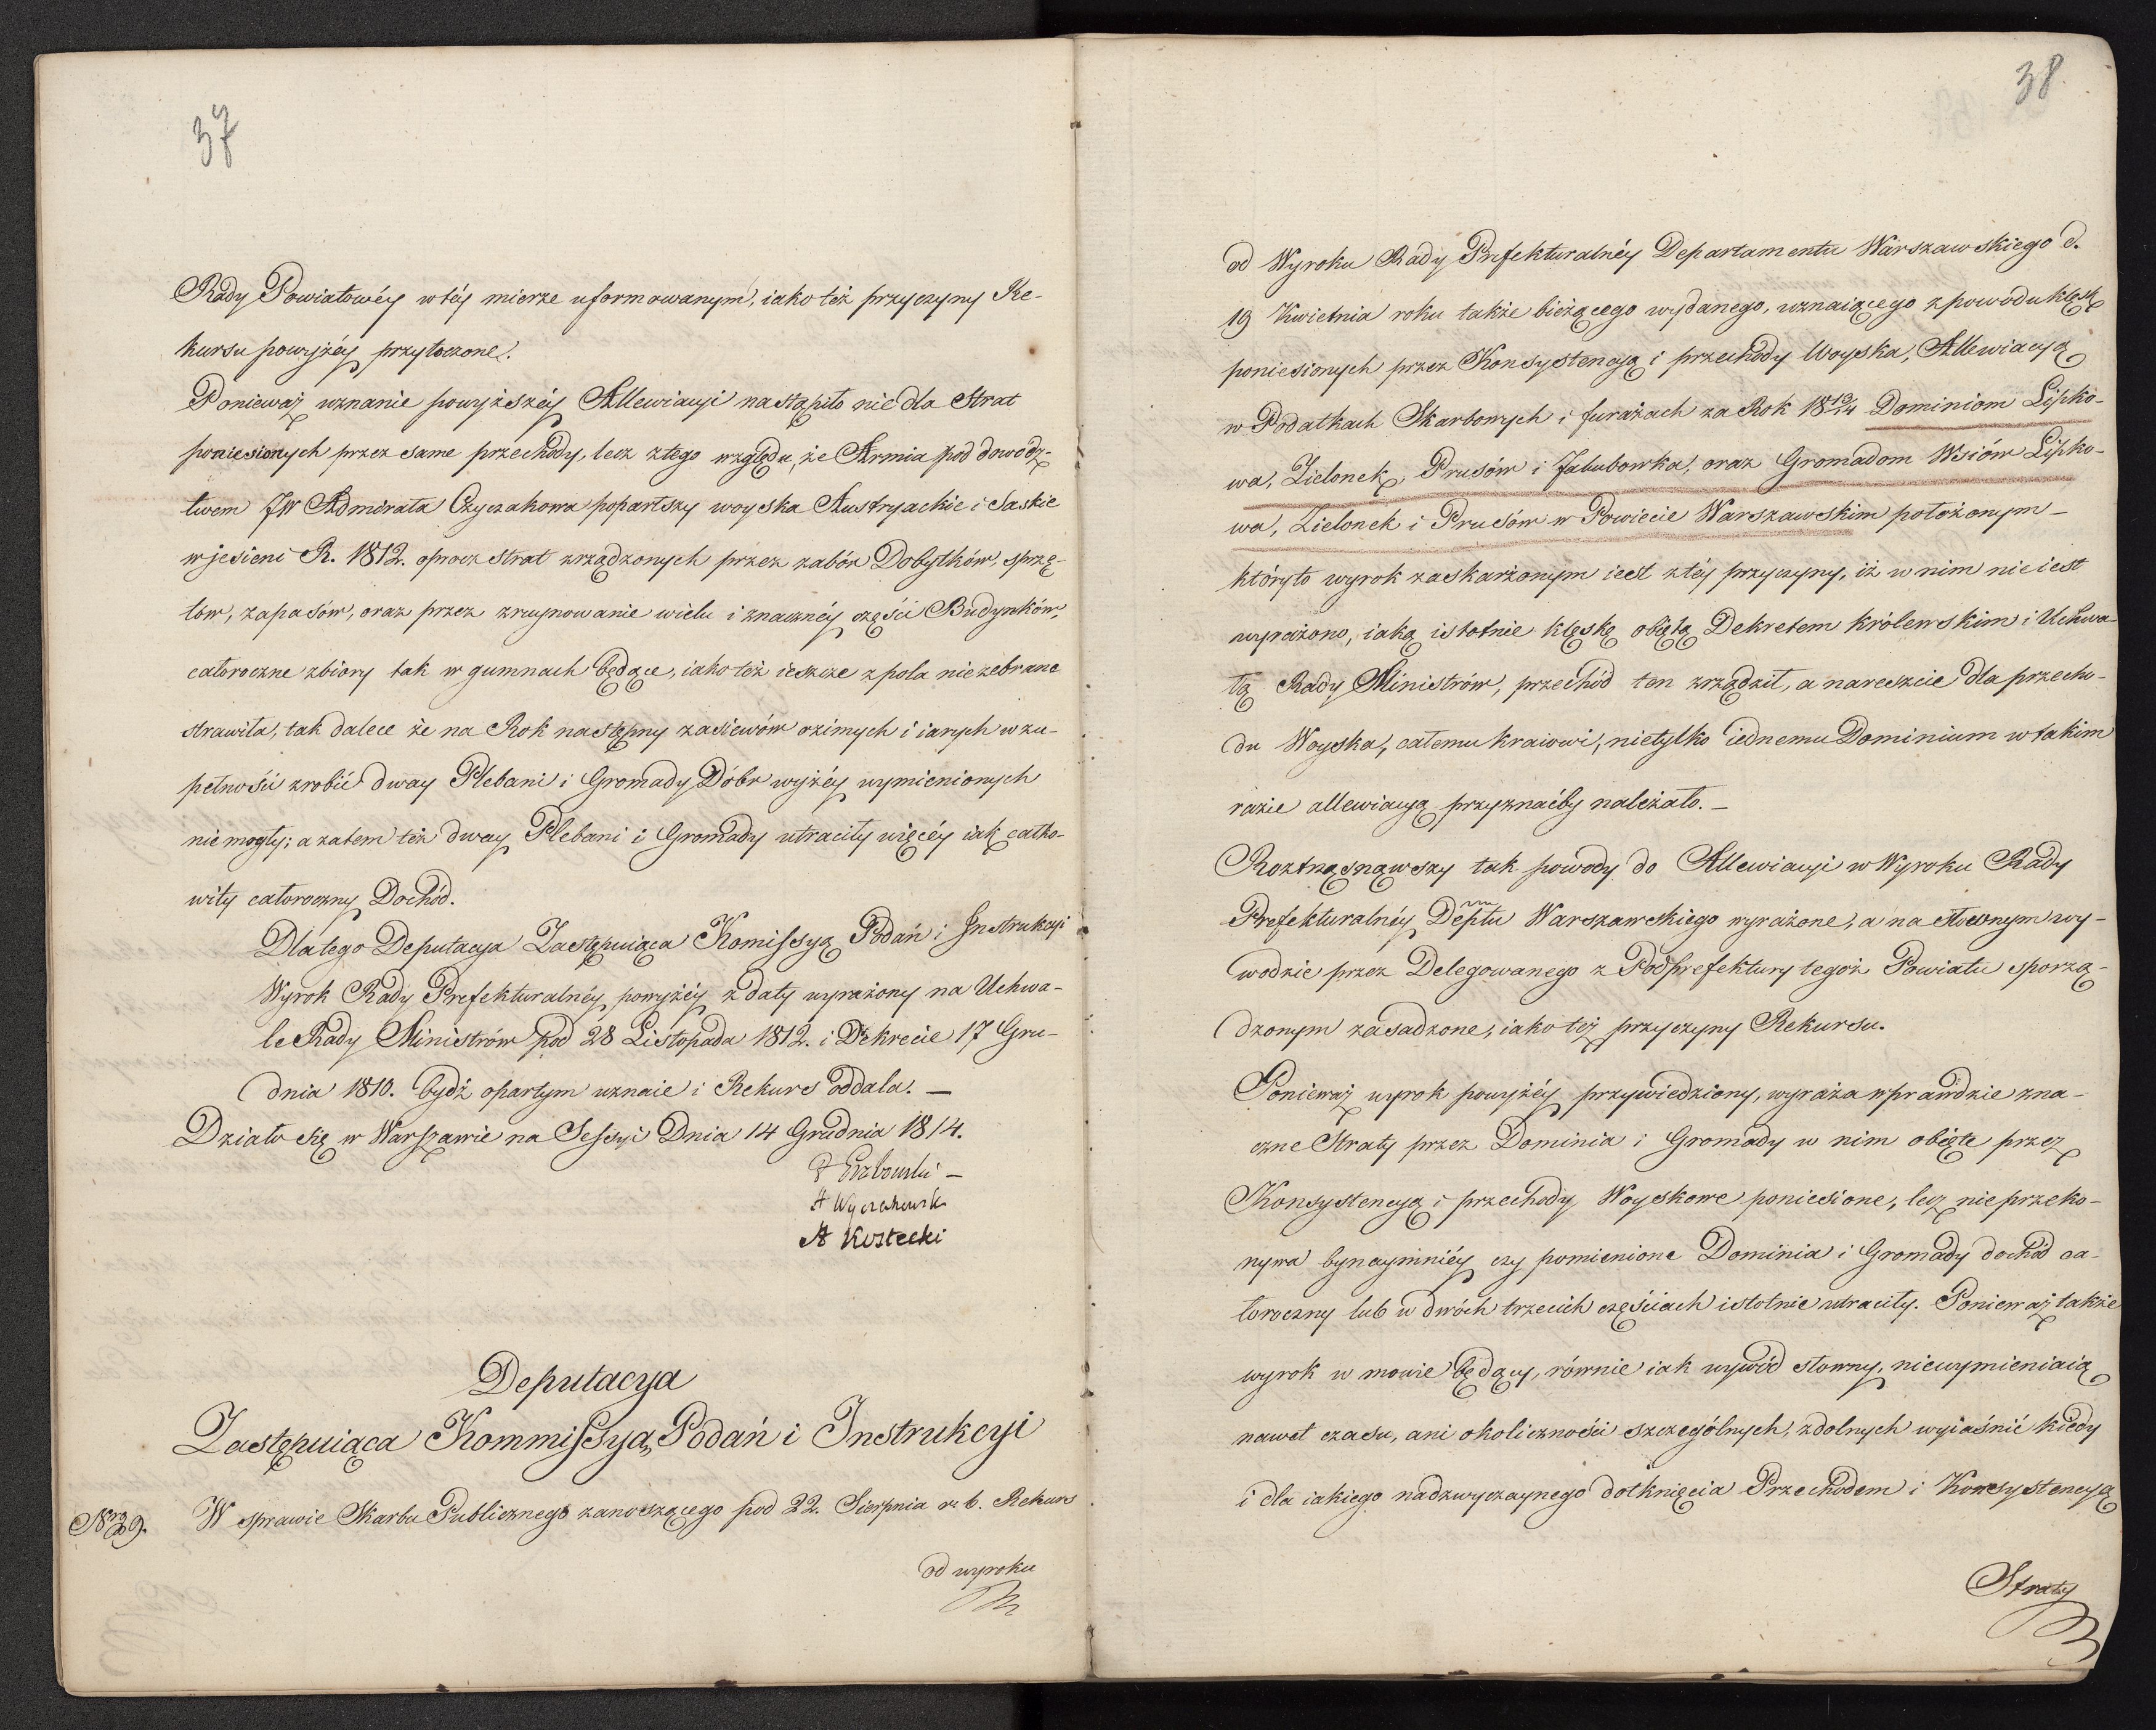 37
Rady Powiatowéy w téy mierze uformowanym, iako też przyczyny Re-
kursu powyżéy przytoczone.
Ponieważ uznanie powyższéy Allewiacyi nastąpiło nie dla Strat
poniesionych przez same przechody, lecz z tego względu, że Armia pod dowódz-
twem JW Admirała Czyczakowa popartszy woyska Austryackie i Saskie
w jesieni R. 1812. oprocz strat zrządzonych przez zabór Dobytków, sprzę-
tów, zapasów, oraz przez zruynowanie wielu i znacznéy części Budynków,
całoroczne zbiory tak w gumnach będące, iako też ieszcze z pola niezebrane
strawiła, tak dalece że na Rok następny zasiewów ozimych i iarych w zu-
pełności zrobić dway Plebani i Gromady Dóbr wyżéy wymienionych
nie mogły; a zatem też dway Plebani i Gromady utraciły więcéy iak całko-
wity całoroczny Dochód.
Dlatego Deputacya Zastępuiąca Komissyą Podań i Instrukcyi
Wyrok Rady Prefekturalnéy powyżéy z daty wyrażony na Uchwa-
le Rady Ministrów pod 28 Listopada 1812. i Dekrecie 17 Gru-
dnia 1810. bydź opartym uznaie i Rekurs oddala. —
Działo się w Warszawie na Sessyi Dnia 14 Grudnia 1814.
A Wyczechowsk
A Kostecki
Deputacya
Zastępuiąca Kommissyą Podań i Instrukcyi
Nro 29. W sprawie Skarbu Publicznego zanoszącego pod 22. Sierpnia r. b. Rekurs
od wyroku
38
od Wyroku Rady Prefekturalnéy Departamentu Warszawskiego d.
19 Kwietnia roku także bieżącego wydanego, uznaiącego z powodu klęsk
poniesionych przez Konsystencyą i przechody Woyska, Allewiacyą
w Podatkach Skarbowych i furażach za Rok 1813/14 Dominiom Lipko-
wa, Zielonek, Prusów i Jakubowka, oraz Gromadom Wsiów Lipko-
wa, Zielonek i Prusów w Powiecie Warszawskim położonym —
któryto wyrok zaskarżonym iest z téy przyczyny, iż w nim nie iest
wyrażono, iaką istotnie klęskę obiętą Dekretem królewskim i Uchwa-
łą Rady Ministrów, przechód ten zrządził, a nareszcie dla przecho-
du Woyska, całemu kraiowi, nietylko iednemu Dominium w takim
razie allewiacyą przyznaćby należało. —
Roztrząsnąwszy tak powody do Allewiacyi w Wyroku Rady
Prefekturalnéy Deptu Warszawskiego wyrażone, a na słownym wy-
wodzie przez Delegowanego z Podprefektury tegoż Powiatu sporzą-
dzonym zasadzone, iako też przyczyny Rekursu.
Ponieważ wyrok powyżéy przywiedziony, wyraża wprawdzie zna-
czne Straty przez Dominia i Gromady w nim obięte przez
Konsystencyą i przechody Woyskowe poniesione, lecz nie przeko-
nywa bynaymniéy czy pomienione Dominia i Gromady dochód ca-
łoroczny lub w dwóch trzecich częściach istotnie utraciły. Ponieważ także
wyrok w mowie będący, równie iak wywód słowny, niewymieniaią
nawet czasu, ani okoliczności szczególnych, zdolnych wyiaśnić kiedy
i dla iakiego nadzwyczaynego dotknięcia Przechodem i Konsystencyą
Straty